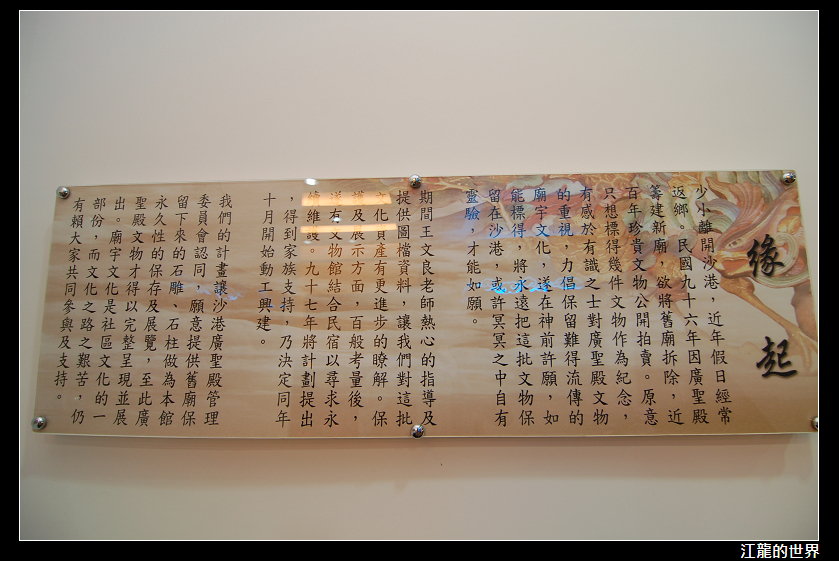 緣起
少小離開沙港，近年假日經常
返鄉。民國九十六年因廣聖殿
籌建新廟，欲將舊廟拆除，近
百年珍貴文物公開拍賣。原意
只想標得幾件文物作為紀念，
有感於有識之士對廣聖殿文物
的重視，力倡保留難得流傳的
廟宇文化，遂在神前許願，如
能標得，將永遠把這批文物保
留在沙港，或許冥冥之中自有
靈驗，才能如願。
期間王文良老師熱心的指導及
提供圖檔資料，讓我們對這批
文化資產有更進步的瞭解。保
護及展示方面，百般考量後，
遂有文物館結合民宿以尋求永
續維護。九十七年將計劃提出
，得到家族支持，乃決定同年
十月開始動工興建。
我們的計畫讓沙港廣聖殿管理
委員會認同，願意提供舊廟保
留下來的石雕、石柱做為本館
永久性的保存及展覽，至此廣
聖殿文物才得以完整呈現並展
出。廟宇文化是社區文化的一
部份，而文化之路之艱苦，仍
有賴大家共同參與及支持。
江龍的世界